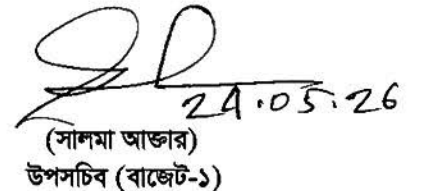 24.05.26
(সালমা আক্তার)
উপসচিব (বাজেট-১)